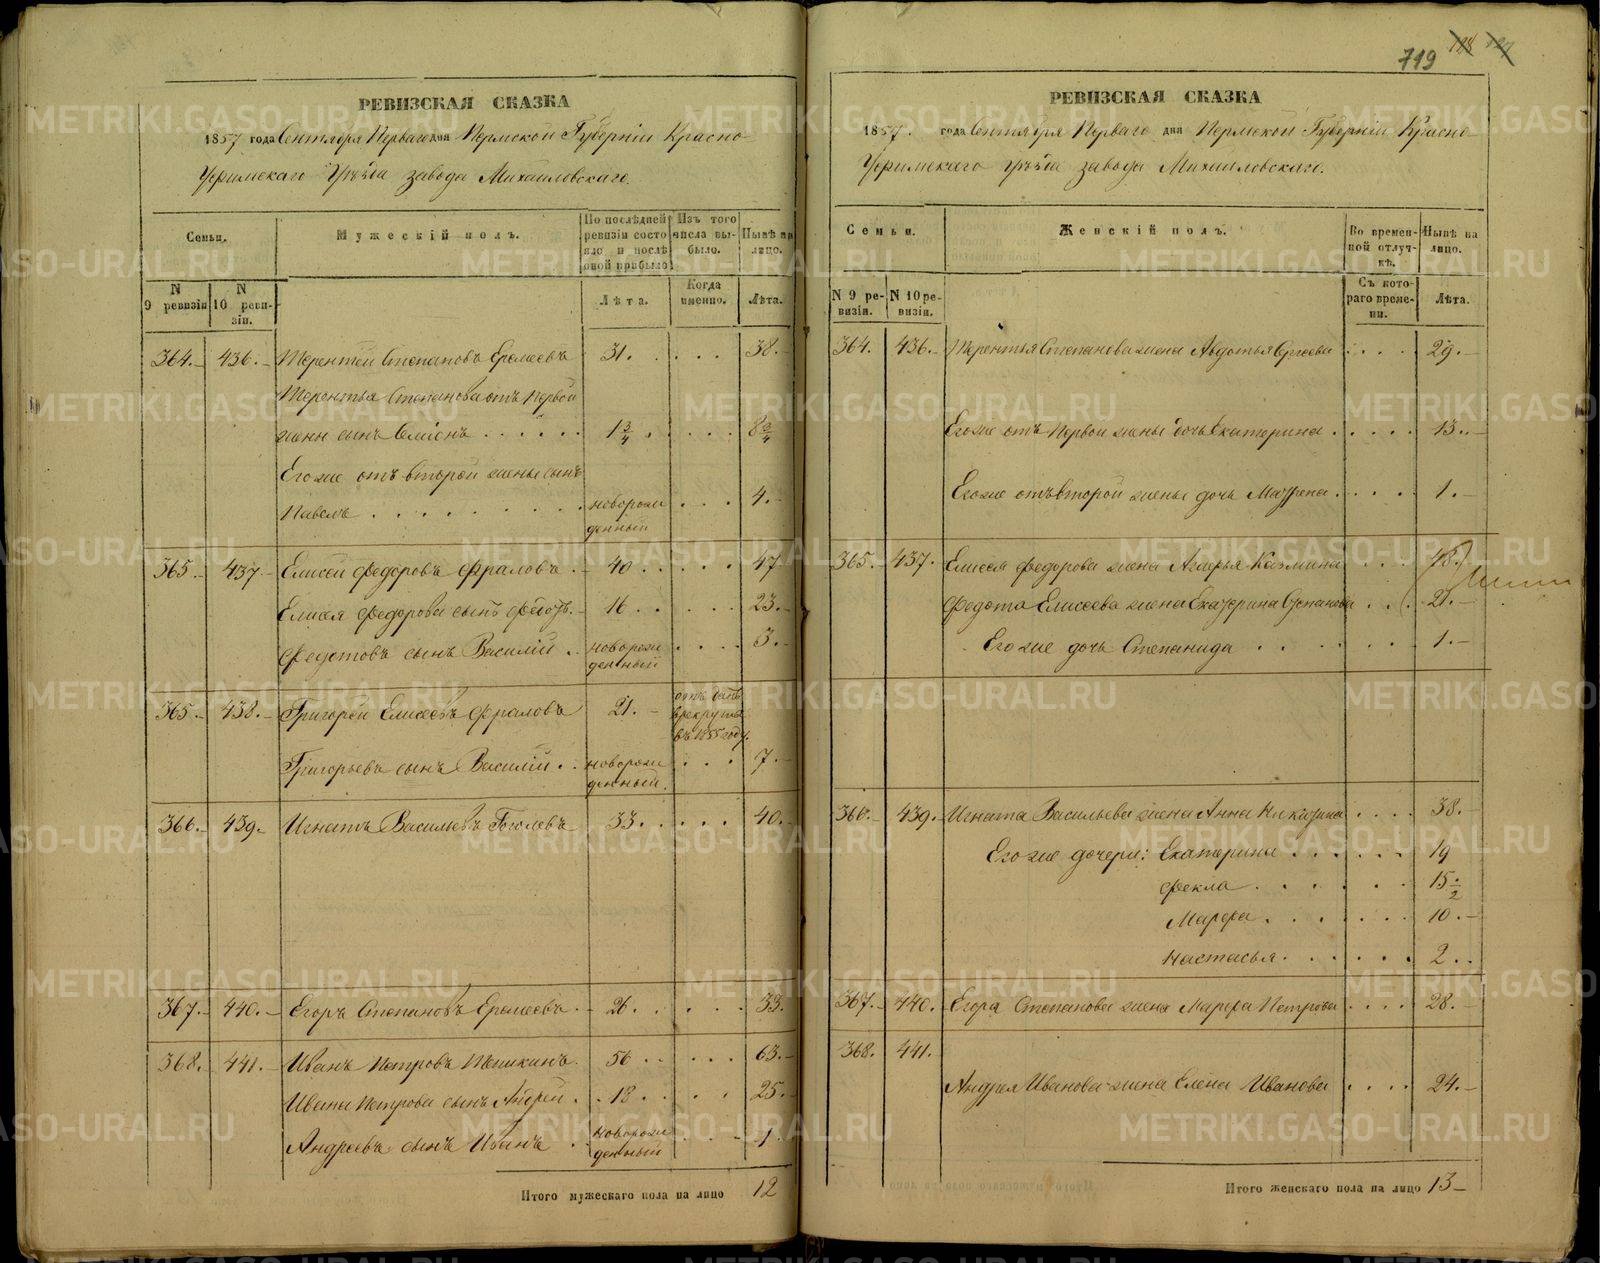 719
РЕВИЗСКАЯ СКАЗКА
1857 года Сентября Перваго дня Пермской Губерніи Красно-
Уфимскаго Уѣзда завода Михаиловскаго.
Семьи.
Мужескій полъ.
По послѣдней ревизіи состояло и послѣ оной прибыло
Изъ того числа выбыло.
Нынѣ на лицо.
N 9 ревизіи
N 10 ревизіи.
Лѣта.
Когда именно.
Лѣта.
364.- 436.- Терентей Степановъ Еремеевъ 31. 38.-
Терентья Степанова отъ первой
жены сынъ Семіонъ 1 3/4 8 3/4
Его же отъ второй жены сынъ
Павелъ новорожденный 4.-
365.- 437.- Елисей Федоровъ Фраловъ 40 47
Елисея Федорова сынъ Федотъ 16 23.-
Федотовъ сынъ Василій новорожденный 3.-
365.- 438.- Григорей Елисеевъ Фраловъ 21.- отъ данъ в рекруты въ 1855 году.
Григорьевъ сынъ Василій новорожденный. 7.-
366.- 439.- Игнатъ Васильевъ Гоголевъ 33. 40.-
367.- 440.- Егоръ Степановъ Еремеевъ 26. 33.-
368.- 441.- Иванъ Петровъ Пешкинъ 56 63.-
Ивана Петрова сынъ Андрей 18 25.-
Андреевъ сынъ Иванъ новорожденный 1.-
Итого мужескаго пола на лицо 12
РЕВИЗСКАЯ СКАЗКА
1857. года Сентября Перваго дня Пермской Губерніи Красно-
Уфимскаго Уѣзда завода Михаиловскаго.
Семьи.
Женскій полъ.
Во временной отлучкѣ.
Нынѣ на лицо.
N 9 ревизіи.
N 10 ревизіи.
Съ котораго времени.
Лѣта.
364. 436.- Терентья Степанова жена Авдотья Сргеева 29.-
Его же отъ первой жены дочь Екатерина 13.-
Его же отъ второй жены дочь Матрена 1.-
365.- 437. Елисея Федорова жена Агафья Казмина 48.
Федота Елисеева жена Екатерина Степанова 21.-
Его же дочь Степанида 1.-
366.- 439. Игната Васильева жена Анна Никитина 38.-
Его же дочери: Екатерина 19
Фекла 15 1/2
Марфа 10.-
Настасья 2
367.- 440. Егора Степанова жена Марфа Петрова 28.-
368. 441.
Андрея Иванова жена Елена Иванова 24.-
Итого женскаго пола на лицо 13-
METRIKI.GASO-URAL.RU